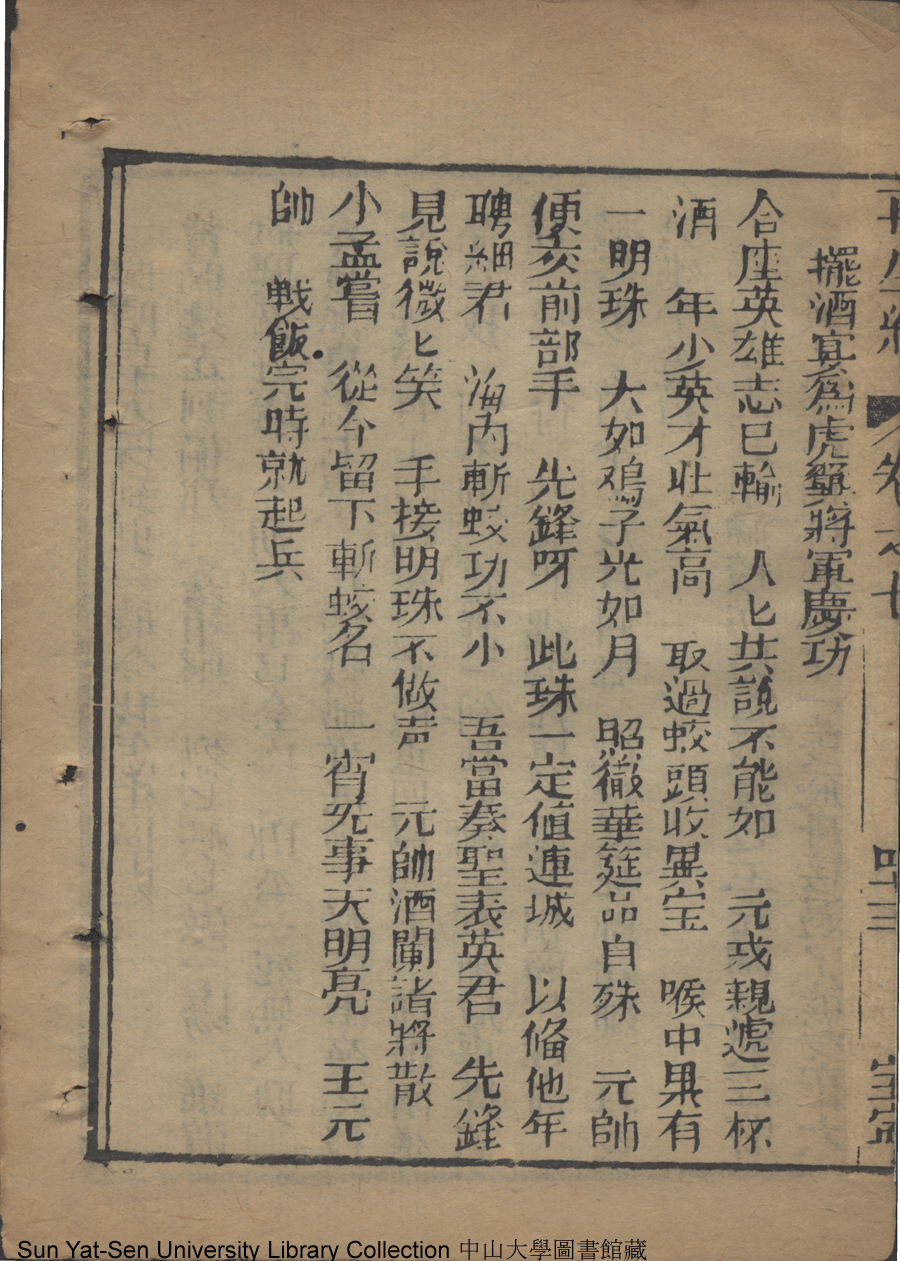 卷之七
擺酒宴為虎翼將軍慶功
合座英雄志已輸　人匕共說不能如　元戎親遞三杯
酒　年少英才壯氣高　取過蛟頭收異宝　喉中果有
一明珠　大如鸡子光如月　照徹華筵品自殊　元帥
便交前部手　先鋒呀　此珠一定值連城　以俻他年
聘細君　海内斬蛟功不小　吾當奏聖表英君　先鋒
見說微匕笑　手接明珠不做声　元帥酒闌諸將散
小孟嘗　從今留下斬蛟名　一宵旡事天明亮　王元
帥　戦飯完時就起兵
Sun Yat-Sen University Library Collection 中山大學圖書館藏